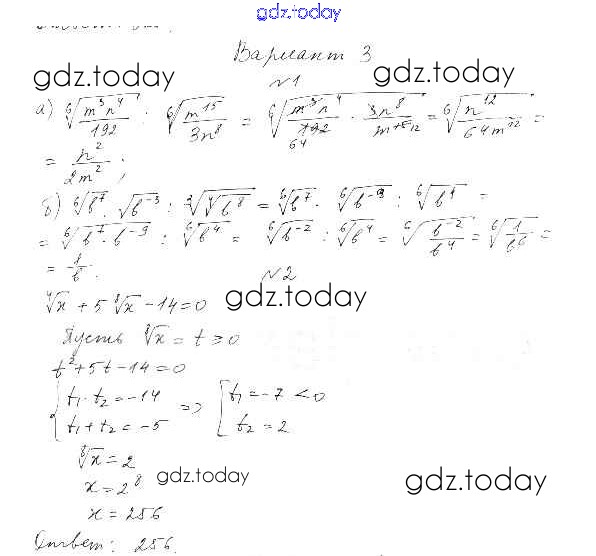 gdz.today
Вариант 3
gdz.today
gdz.today
№1
а) ⁶√(m³n⁴/192) : ⁶√(m¹⁵/3n⁸) = ⁶√(m³n⁴/192 · 3n⁸/m¹⁵) = ⁶√(n¹²/64m¹²) =
= n²/2m²;
б) ⁶√b⁷ · √b⁻³ : ³√(⁴√b⁸) = ⁶√b⁷ · ⁶√b⁻⁹ : ⁶√b⁴ =
= ⁶√(b⁷ · b⁻⁹) : ⁶√b⁴ = ⁶√b⁻² : ⁶√b⁴ = ⁶√(b⁻²/b⁴) = ⁶√(1/b⁶) =
= 1/b.
№2
⁴√x + 5 ⁸√x − 14 = 0
gdz.today
Пусть ⁸√x = t ≥ 0
t² + 5t − 14 = 0
{ t₁ · t₂ = −14 => [ t₁ = −7 < 0
t₁ + t₂ = −5 t₂ = 2
⁸√x = 2
gdz.today
x = 2⁸
gdz.today
x = 256
Ответ: 256.